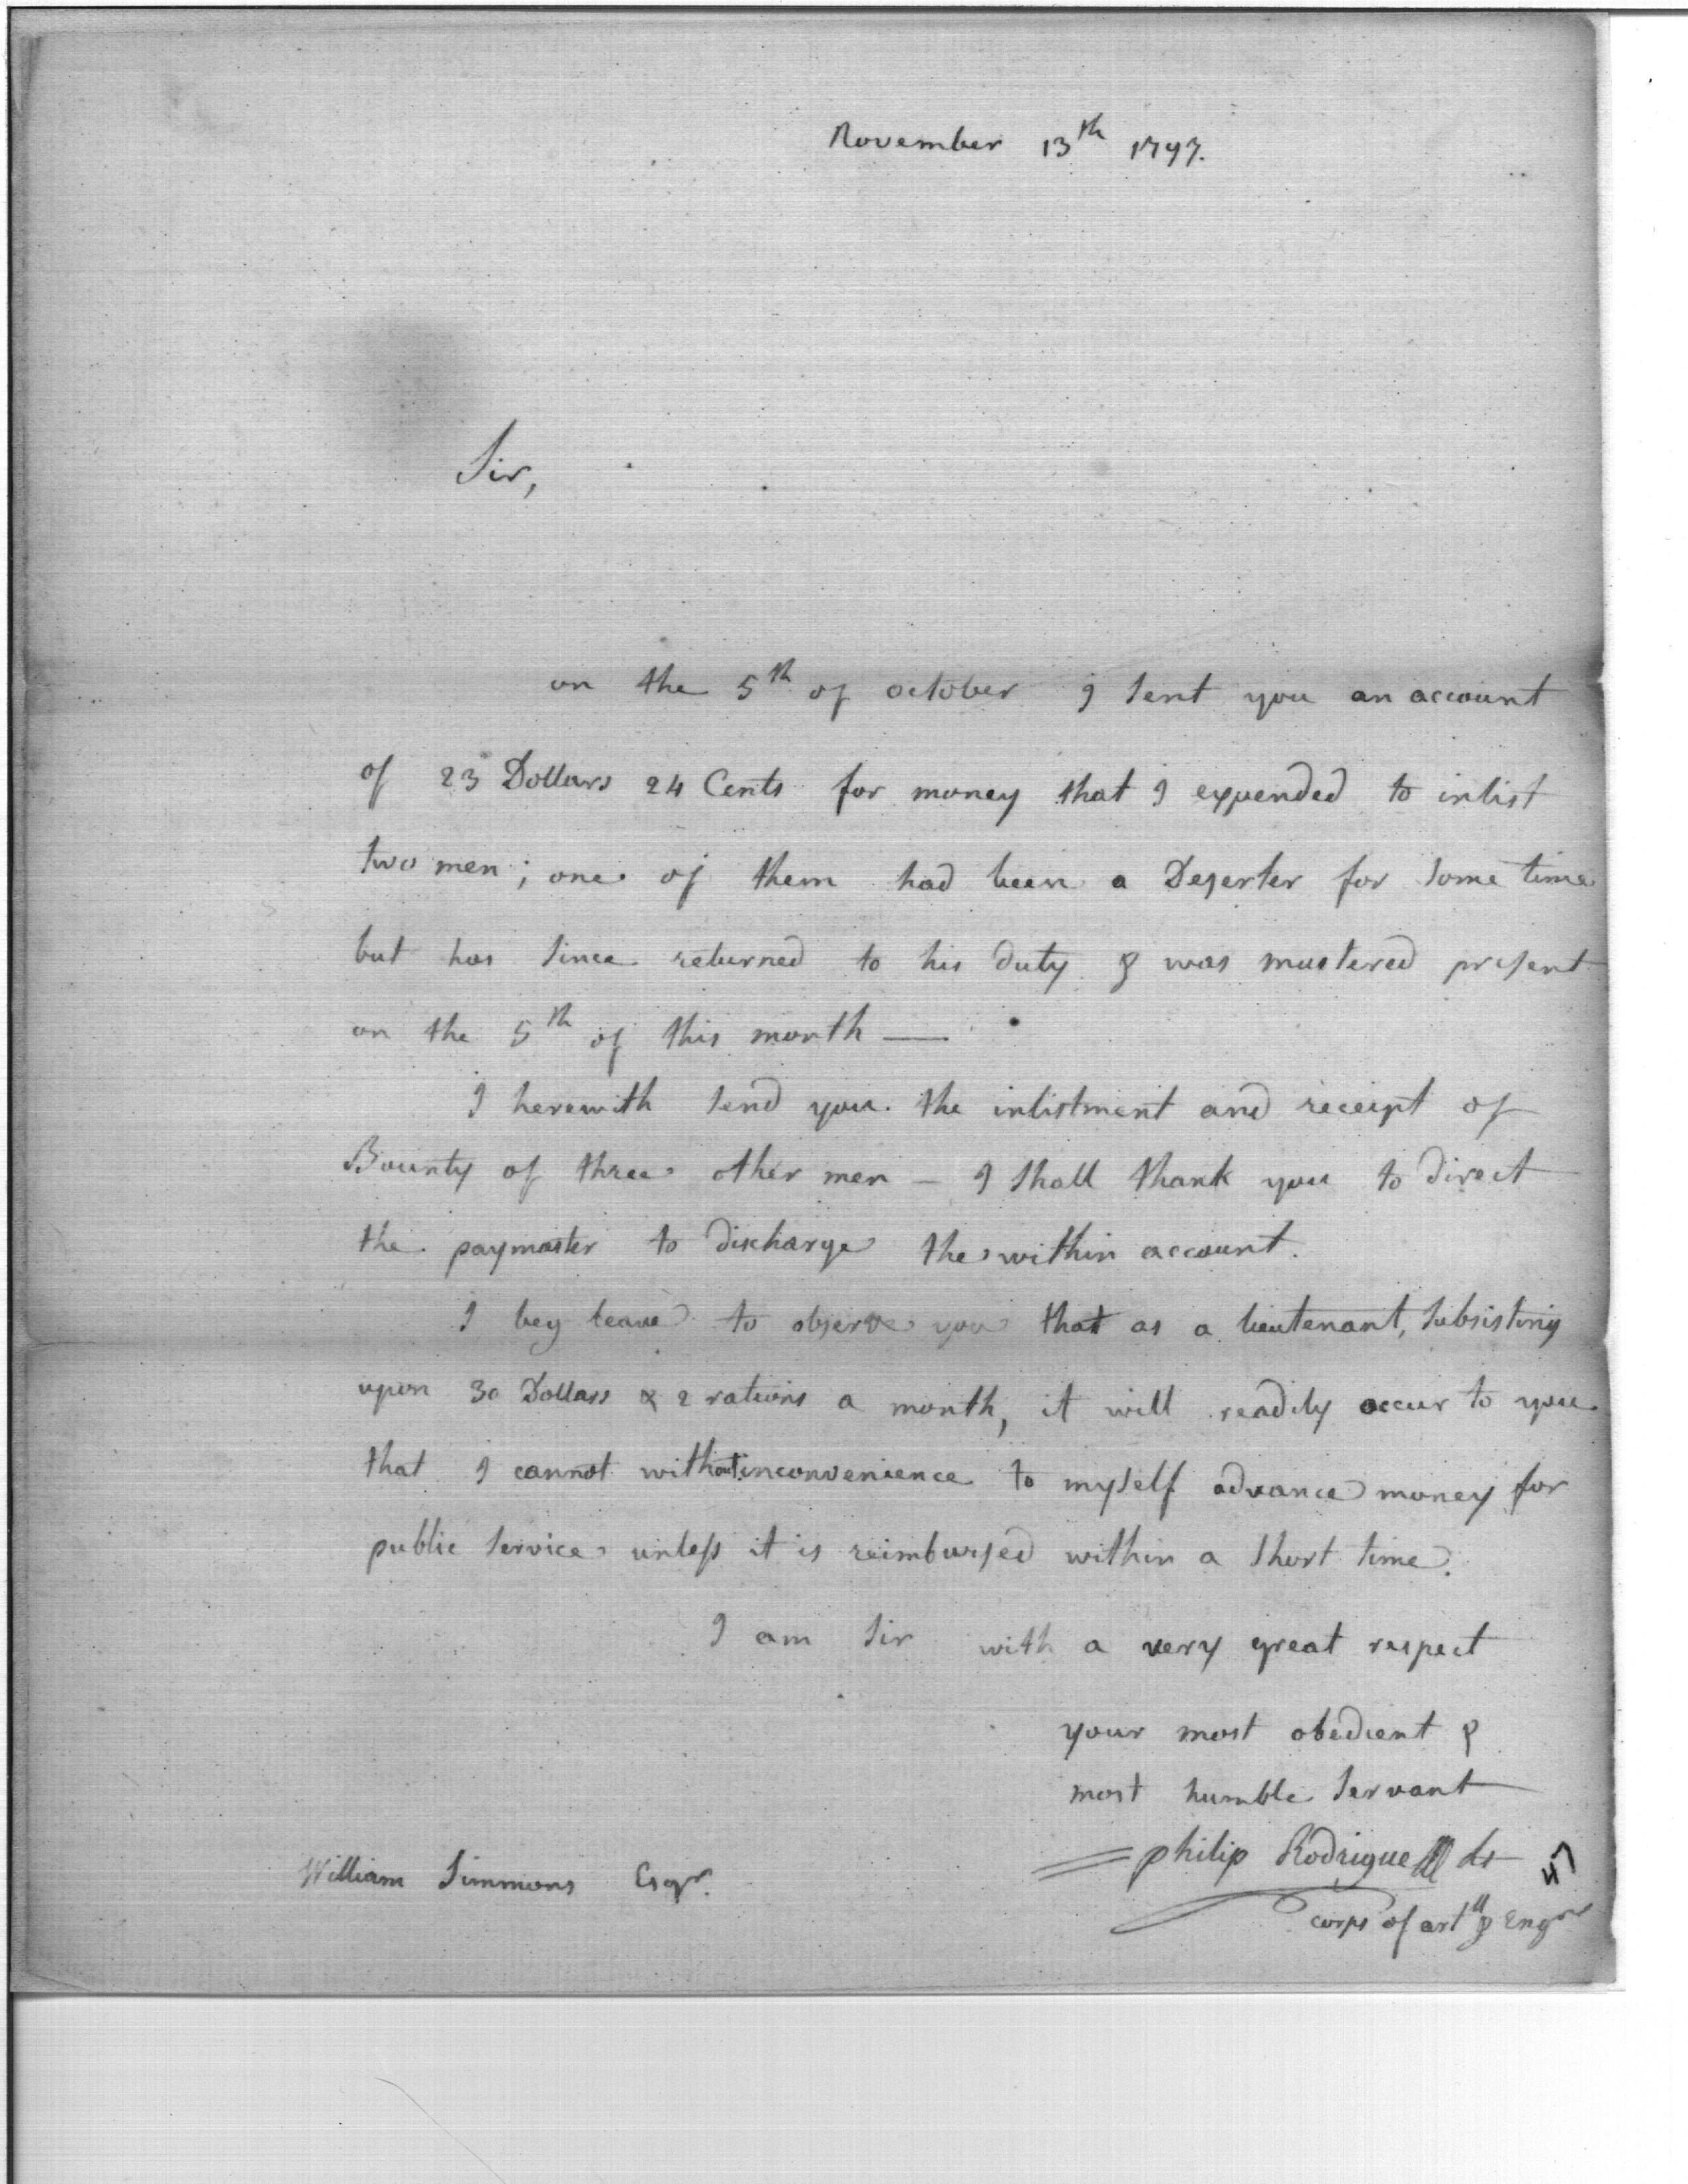 November 13th 1797.
Sir,
on the 5th of october I sent you an account
of 23 Dollars 24 Cents for money that I expended to inlist
two men; one of them had been a Deserter for some time
but has since returned to his duty & was mustered present
on the 5th of this month —
I herewith send you the inlistment and receipt of
Bounty of three other men – I shall thank you to direct
the paymaster to discharge the within account.
I beg leave to observe you that as a lieutenant, subsisting
upon 30 Dollars & 2 rations a month, it will readily occur to you
that I cannot without inconvenience to myself advance money for
public service unless it is reimbursed within a short time.
I am Sir with a very great respect
your most obedient &
most humble servant
philip Rodrigue Lt
corps of artll & Engrs
William Simmons Esqr.
47